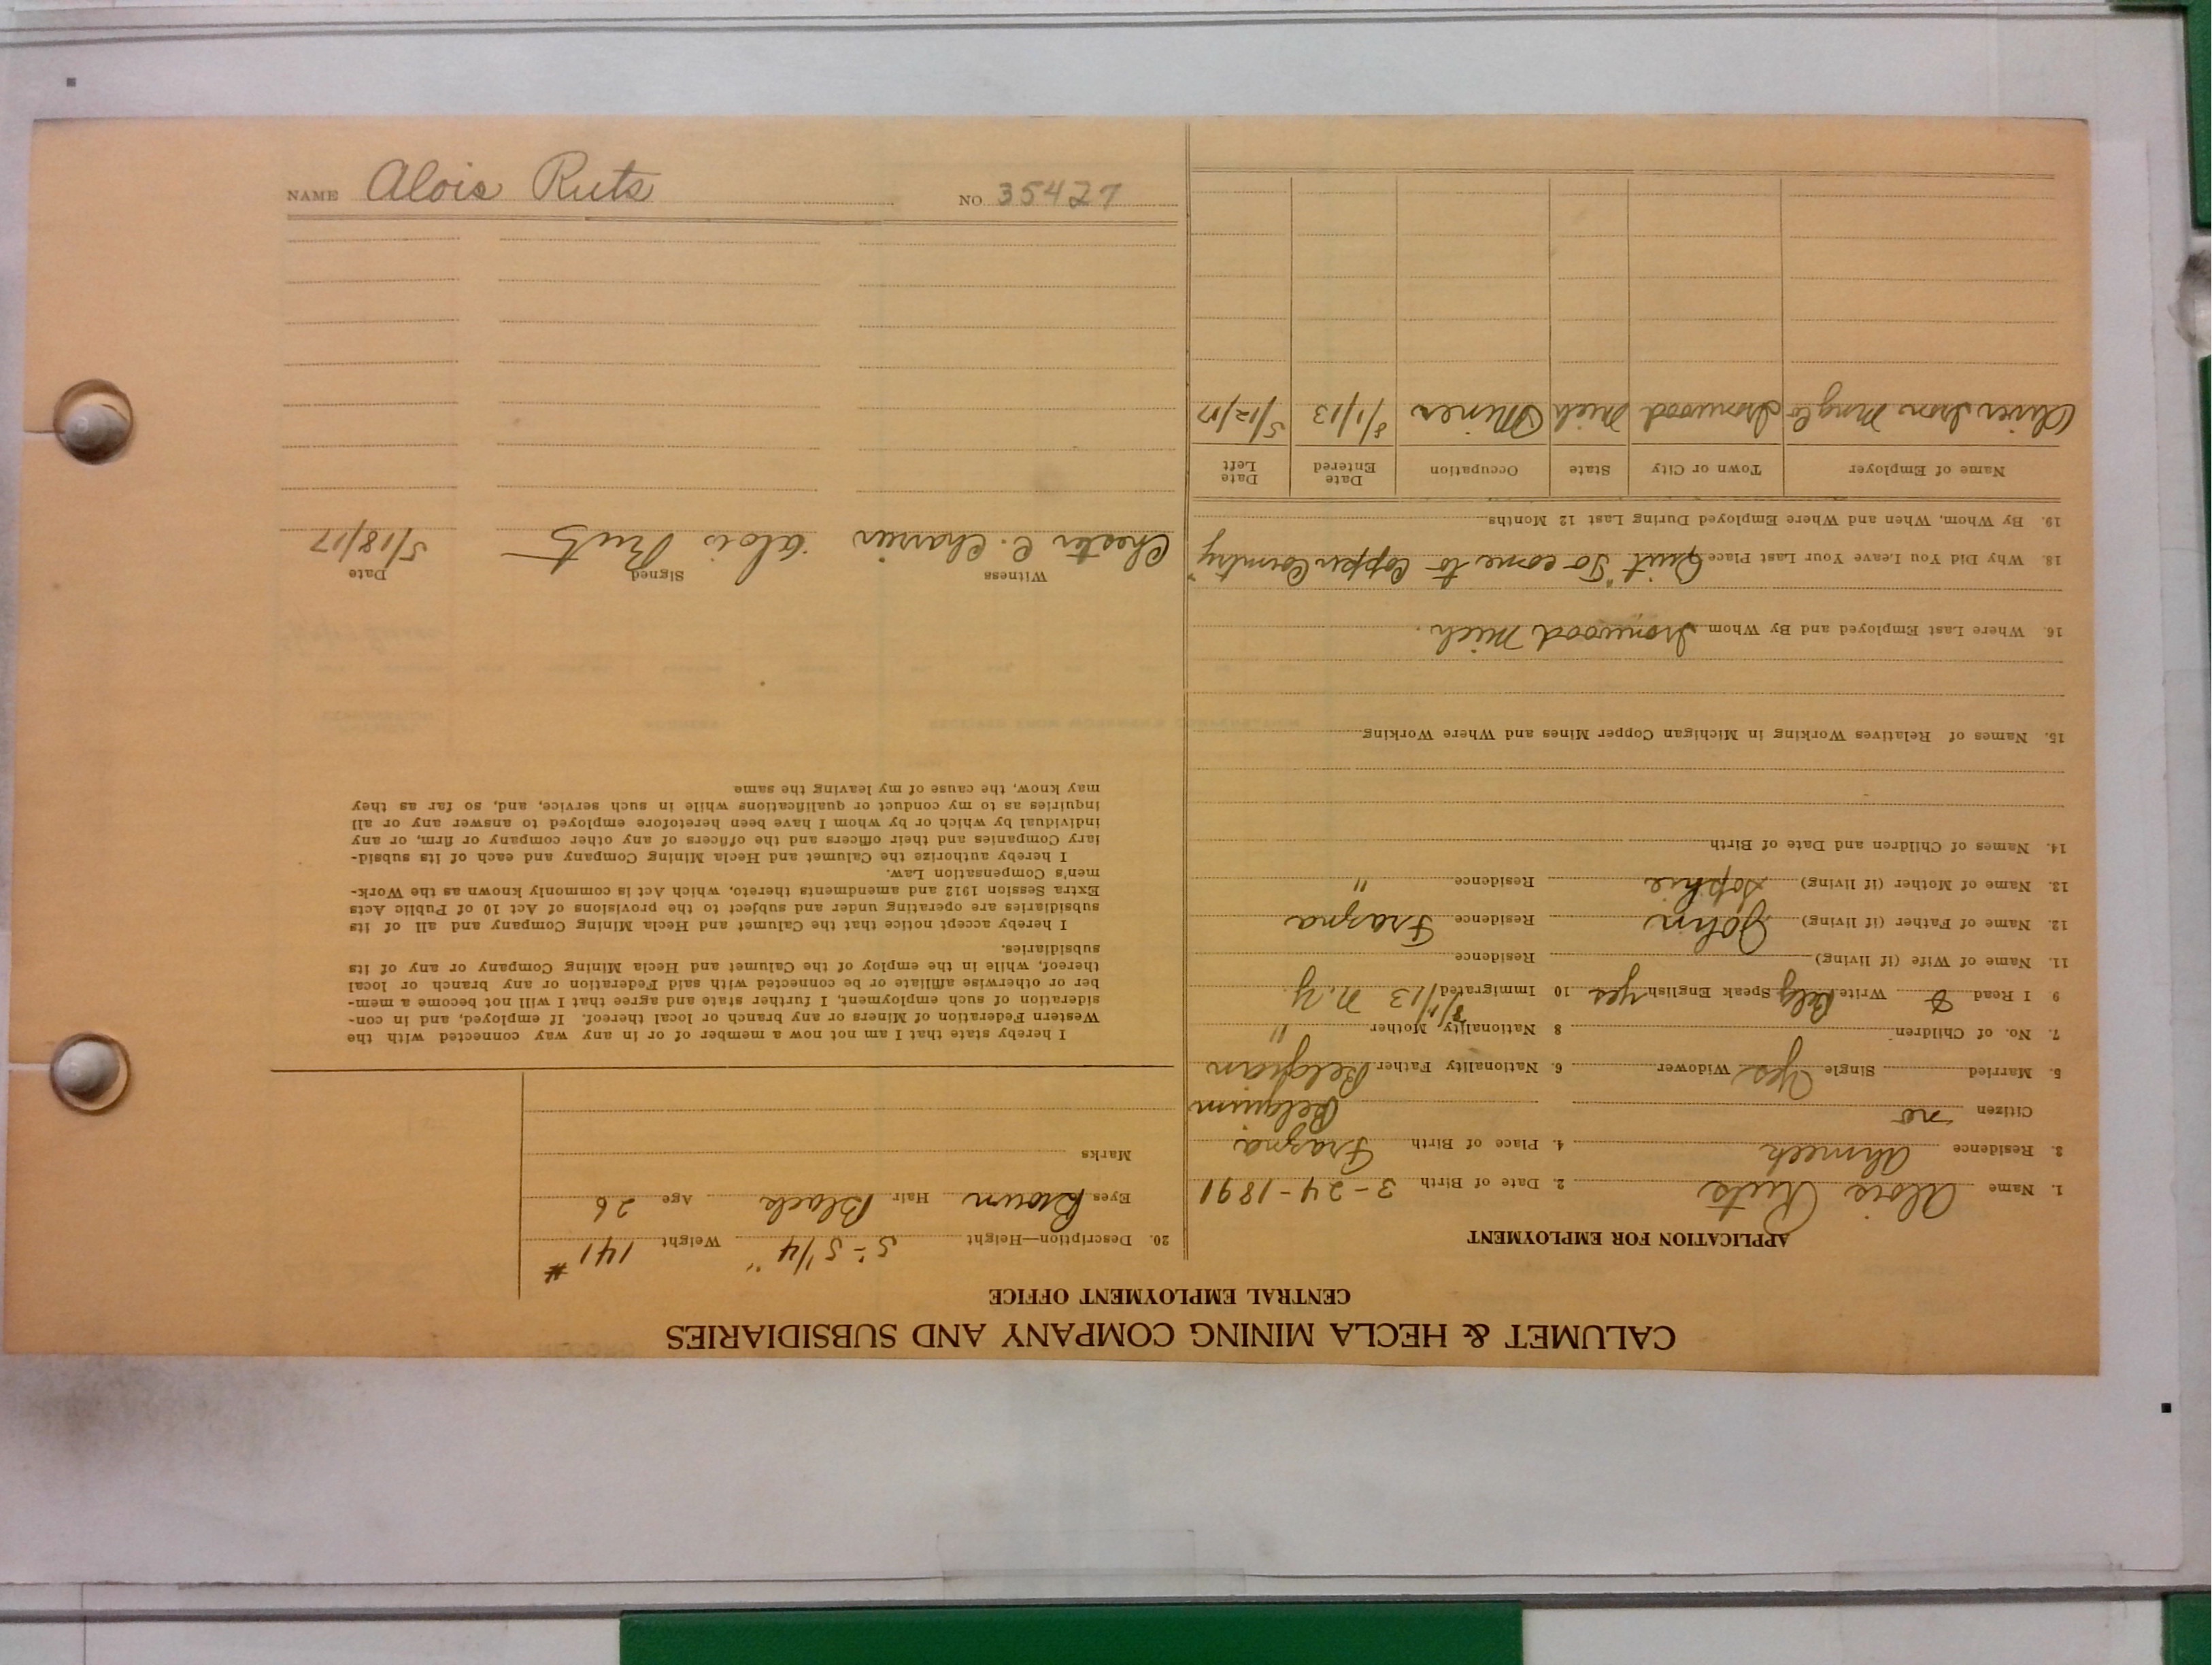 NAME Alois Ruts NO. 35427
CALUMET & HECLA MINING COMPANY AND SUBSIDIARIES
CENTRAL EMPLOYMENT OFFICE
APPLICATION FOR EMPLOYMENT
1. Name Alois Ruts 2. Date of Birth 3-24-1891
3. Residence Ahmeek 4. Place of Birth Frazna
Citizen no Belguim
5. Married Single Yes Widower 6. Nationality Father Belgian
7. No. of Children 8 Nationality Mother "
9 I Read & Write Belg Speak English yes 10 Immigrated 8/1/13 N.Y.
11. Name of Wife (if living) Residence
12. Name of Father (if living) John Residence Frazna
13. Name of Mother (if living) Sophie Residence "
14. Names of Children and Date of Birth
15. Names of Relatives Working in Michigan Copper Mines and Where Working
16. Where Last Employed and By Whom Ironwood Mich.
18. Why Did You Leave Your Last Place Quit "To come to Copper Country"
19. By Whom, When and Where Employed During Last 12 Months
Name of Employer Town or City State Occupation Date Entered Date Left
Oliver Iron Mng Co Ironwood Mich Miner 8/1/13 5/12/17
20. Description—Height 5-5 1/4" Weight 141 #
Eyes Brown Hair Black Age 26
Marks
I hereby state that I am not now a member of or in any way connected with the
Western Federation of Miners or any branch or local thereof. If employed, and in con-
sideration of such employment, I further state and agree that I will not become a mem-
ber or otherwise affiliate or be connected with said Federation or any branch or local
thereof, while in the employ of the Calumet and Hecla Mining Company or any of its
subsidiaries.
I hereby accept notice that the Calumet and Hecla Mining Company and all of its
subsidiaries are operating under and subject to the provisions of Act 10 of Public Acts
Extra Session 1912 and amendments thereto, which Act is commonly known as the Work-
men's Compensation Law.
I hereby authorize the Calumet and Hecla Mining Company and each of its subsid-
iary Companies and their officers and the officers of any other company or firm, or any
individual by which or by whom I have been heretofore employed to answer any or all
inquiries as to my conduct or qualifications while in such service, and, so far as they
may know, the cause of my leaving the same
Witness Signed Date
Chester C. Alois Ruts 5/18/17